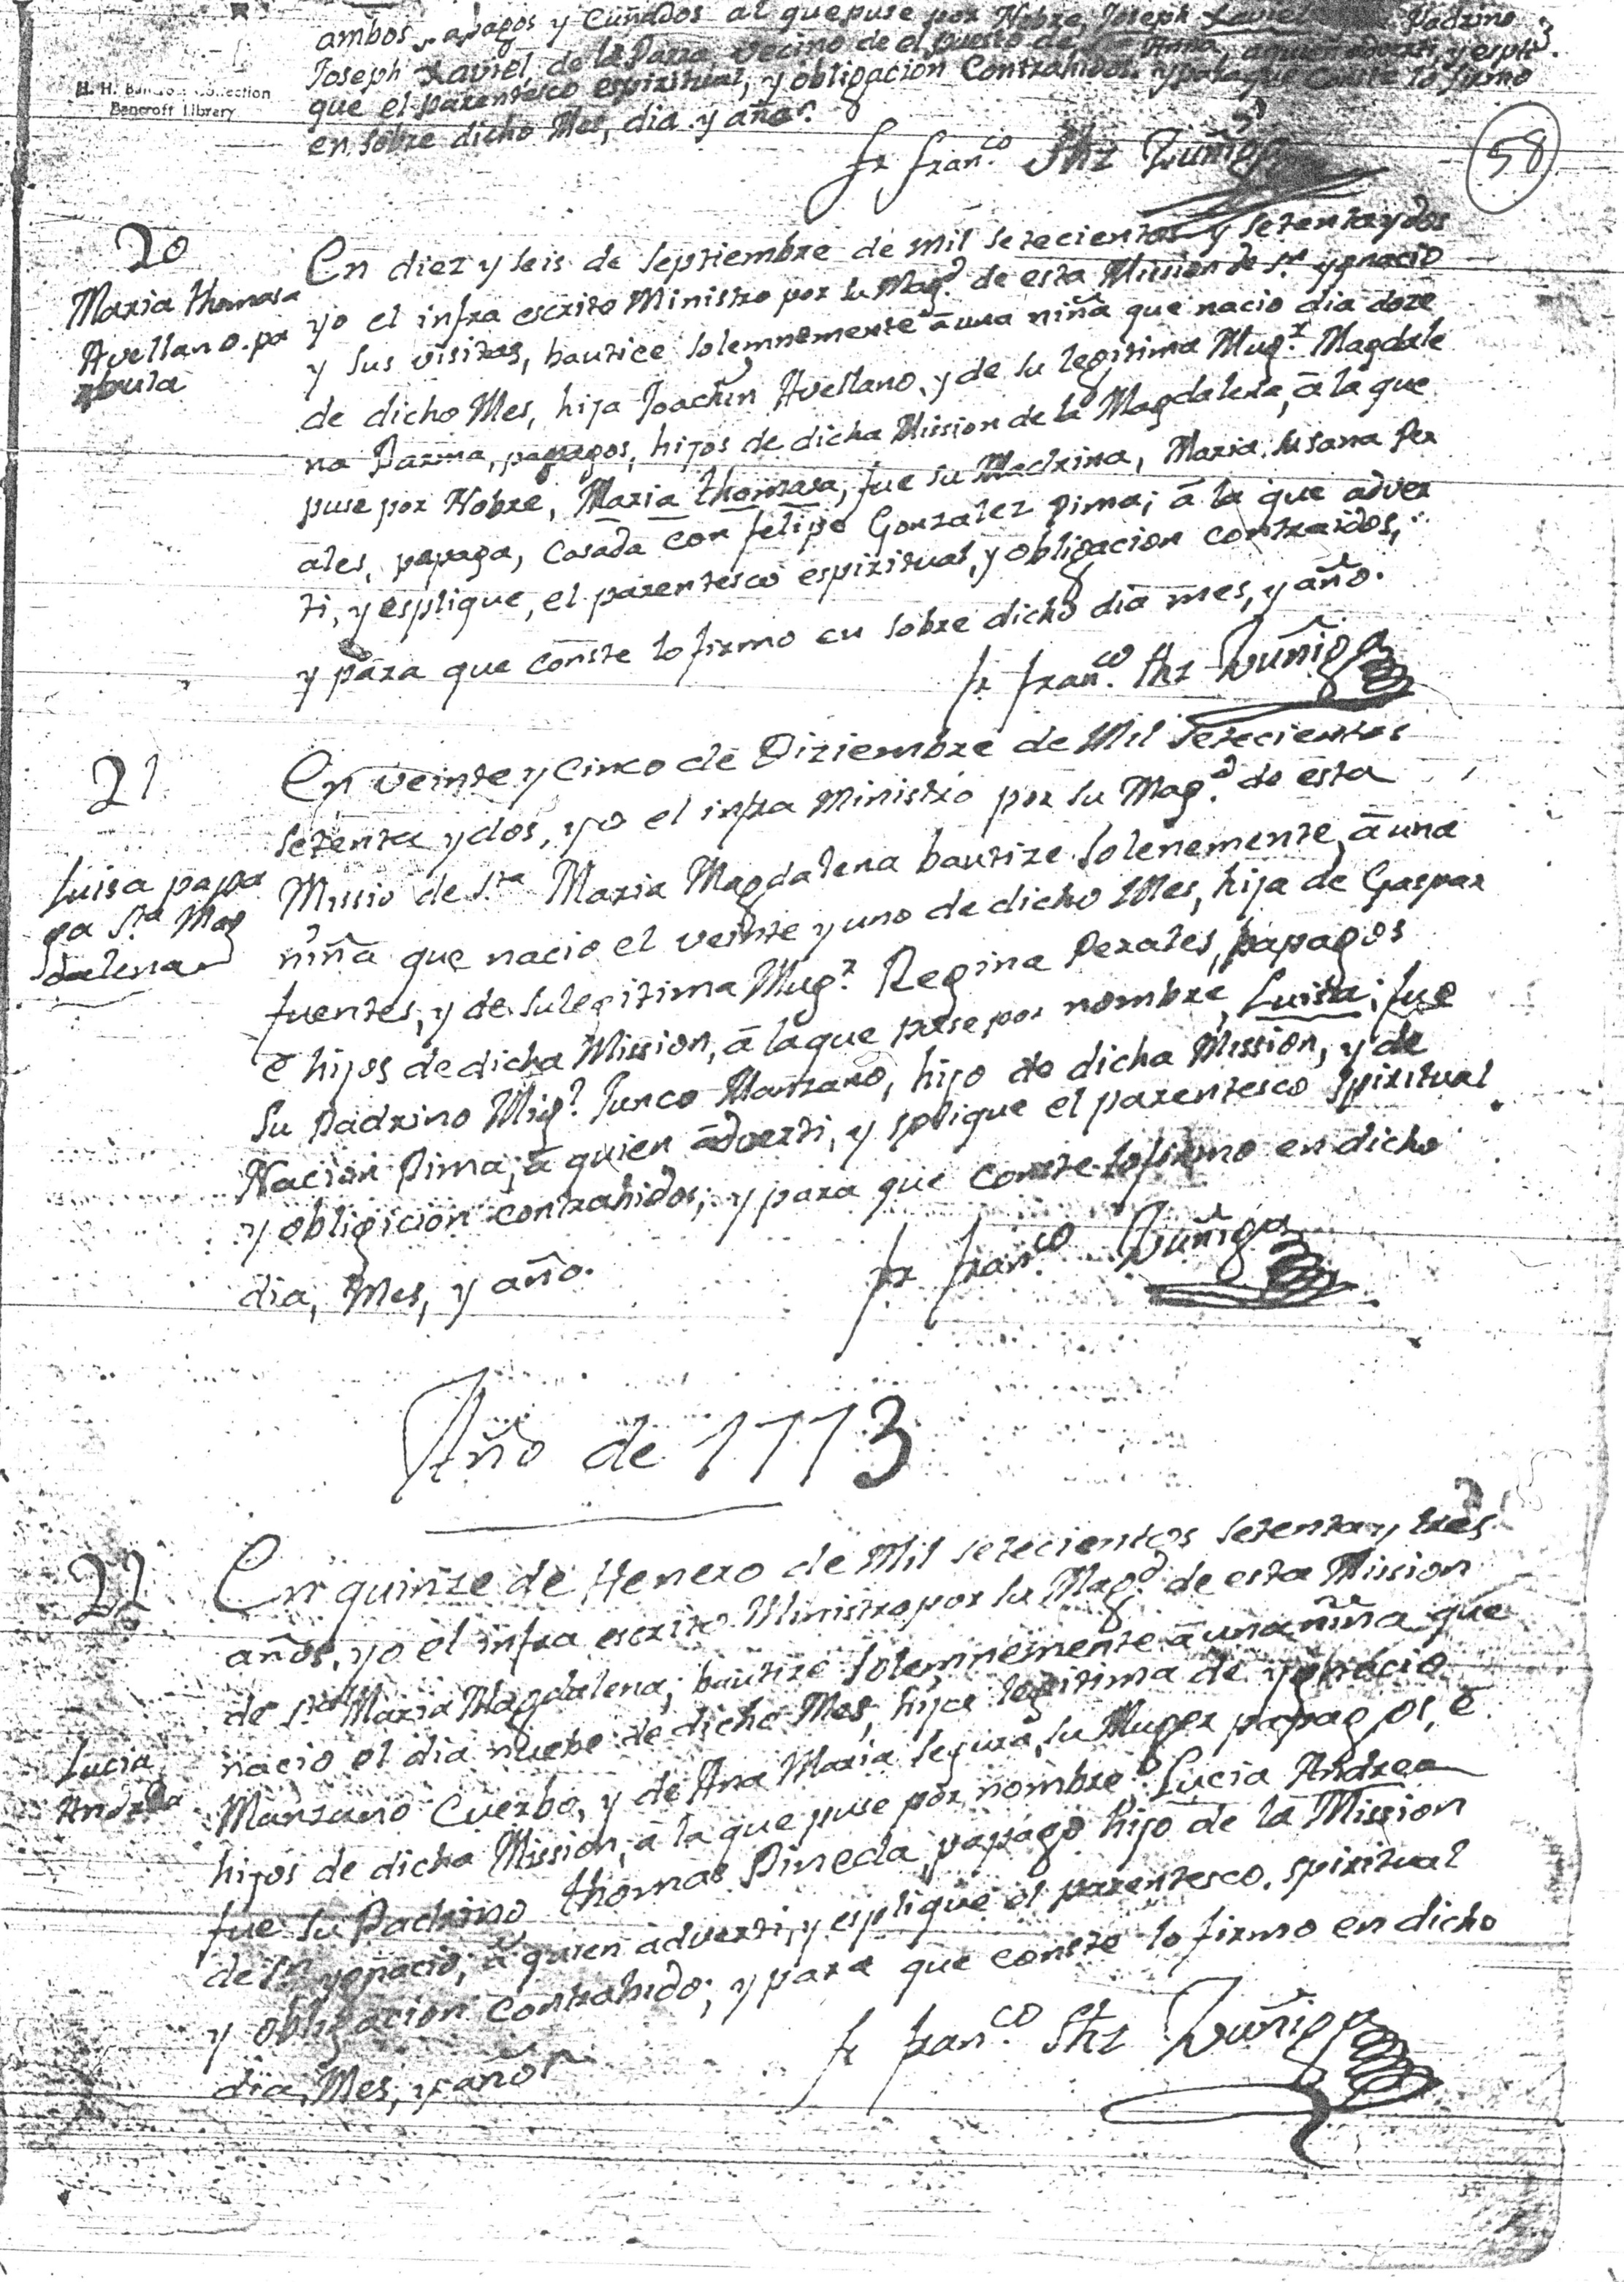 ambos papagos y Cuñados al que puse por Nobre, Joseph Xaviel Padrino
Joseph Xaviel, de la Parra, vecino de el puesto de Sta Anna, a quien adverti, y esplı
que el parentesco espiritual, y obligacion Contrahidos, y para que conste lo firmo
en sobre dicho Mes, dia y año.
H. H. Bancroft Collection
Bancroft Library
fr franco. Shz Zuñiga
58
20
Maria thomasa
Avellano. pa
En diez y seis de Septiembre de mil setecientos y setenta y dos
yo el infra escrito Ministro por su Magd. de esta Mission de Sn. ygnacio
y sus visitas, bautice solemnemente â una niña que nacio dia doze
de dicho Mes, hija Joachin Avellano, y de su legitima Mugr. Magdale
na Parma, papagos, hijos de dicha Mission de la Magdalena, â la que
puse por Nobre, Maria thomasa, fue su Madrina, Maria Susana Per
ales, papaga, casada con felipe Gonzalez Pima; â la que adver
ti, y esplique, el parentesco espiritual, y obligacion contraidos,
y para que conste lo firmo en sobre dicho dia mes, y año.
fr franco. Shz Zuñiga
21
Luisa papa
ga Sta Mag
dalena
En veinte y cinco de Diziembre de Mil Setecientos
setenta y dos, yo el infra Ministro por su Magd. de esta
Missio de Sta Maria Magdalena bautize solenemente, â una
niña que nacio el veinte y uno de dicho Mes, hija de Gaspar
fuentes, y de su legitima Mugr. Regina Perales, papagos
e hijos de dicha Mission, â la que puse por nombre, Luisa; fue
su Padrino Migl. Junco Manzano, hijo de dicha Mission, y de
Nacion Pima; â quien adverti, y splique el parentesco Spiritual
y obligicion contrahidos; y para que conste lo firmo en dicho
dia, Mes, y año.
fr franco. Zuñiga
Año de 1773
22
Lucia
Andrea
En quinze de Henero de Mil setecientos setenta y tres
años, yo el infra escrito Ministro por su Magd. de esta Mission
de Sta Maria Magdalena; bautize solemnemente â una niña que
nacio el dia nuebe de dicho Mes, hija legitima de ygnacio
Manzano Cuerbo, y de Ana Maria Segura, su Muger papagos, e
hijos de dicha Mission, â la que puse por nombre Lucia Andrea
fue su Padrino thomas Pineda papago hijo de la Mission
de Sn. ygnacio; â quien adverti, y esplique el parentesco. spiritual
y obligacion contrahido; y para que conste lo firmo en dicho
dia, Mes, y año
fr franco Shz Zuñiga